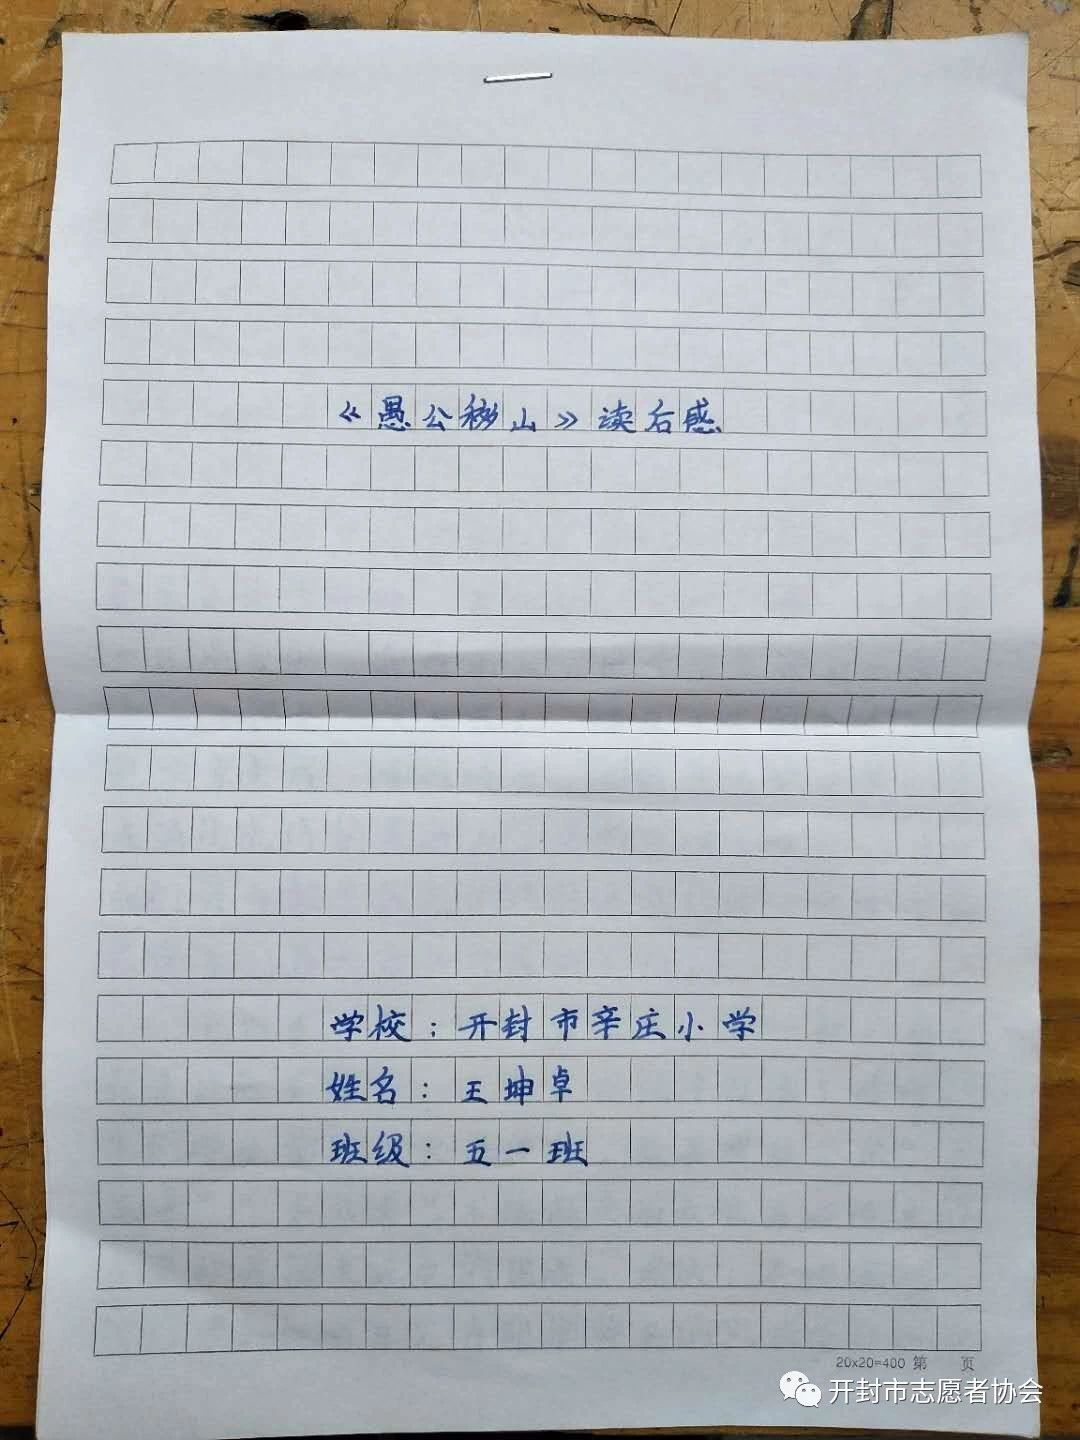 《愚公移山》读后感
学校：开封市辛庄小学
姓名：王坤卓
班级：五一班
20x20=400 第 页
开封市志愿者协会